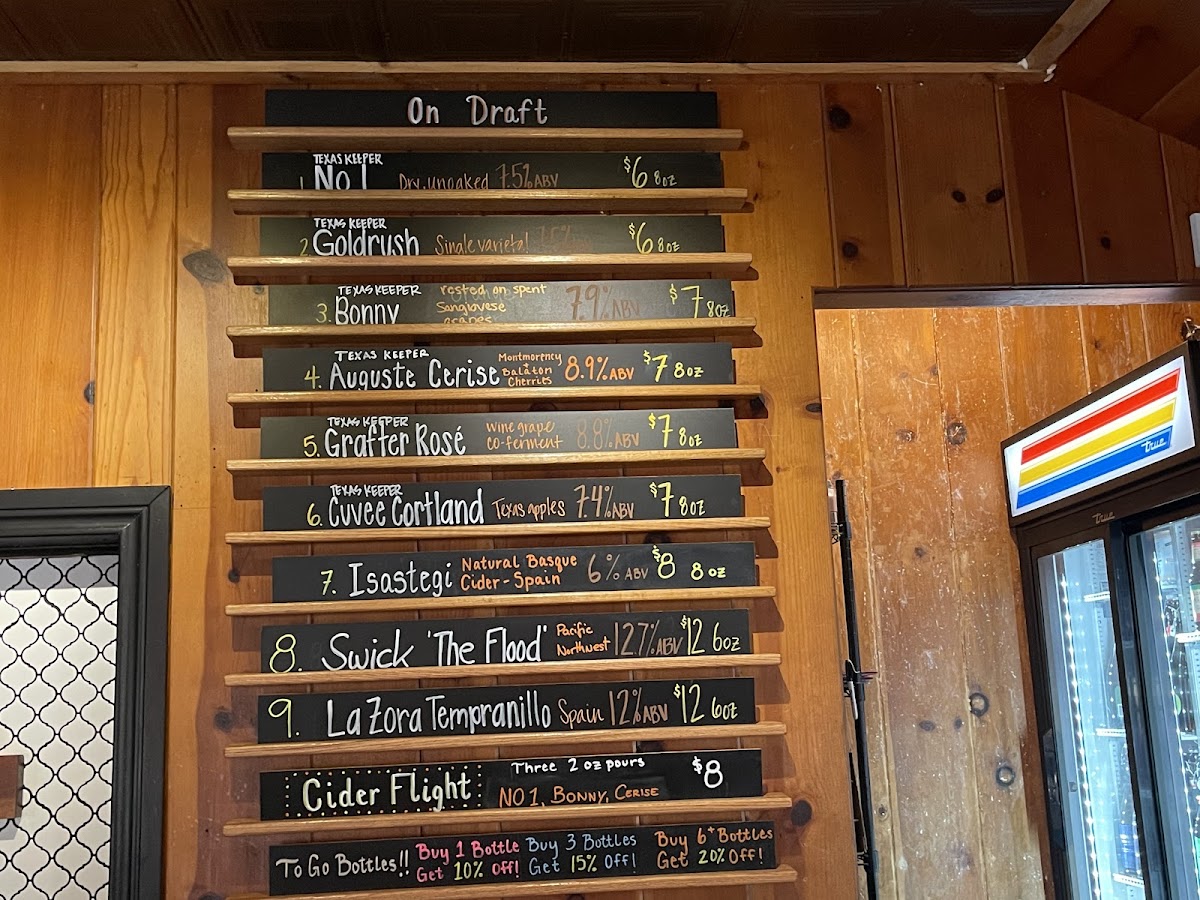 On Draft
TEXAS KEEPER
1. No 1 Dry, unoaked 7.5% ABV $6 8oz
TEXAS KEEPER
2. Goldrush Single varietal $6 8oz
TEXAS KEEPER
3. Bonny rested on spent Sangiovese grapes 7.9% ABV $7 8oz
TEXAS KEEPER
4. Auguste Cerise Montmorency + Balaton Cherries 8.9% ABV $7 8oz
TEXAS KEEPER
5. Grafter Rosé Wine grape co-ferment 8.8% ABV $7 8oz
TEXAS KEEPER
6. Cuvee Cortland Texas apples 7.4% ABV $7 8oz
7. Isastegi Natural Basque Cider - Spain 6% ABV $8 8oz
8. Swick 'The Flood' Pacific Northwest 12.7% ABV $12 6oz
9. La Zora Tempranillo Spain 12% ABV $12 6oz
Cider Flight Three 2 oz pours $8
NO 1, BONNY, CERISE
To Go Bottles!! Buy 1 Bottle Get 10% Off! Buy 3 Bottles Get 15% Off! Buy 6+ Bottles Get 20% Off!
True
True